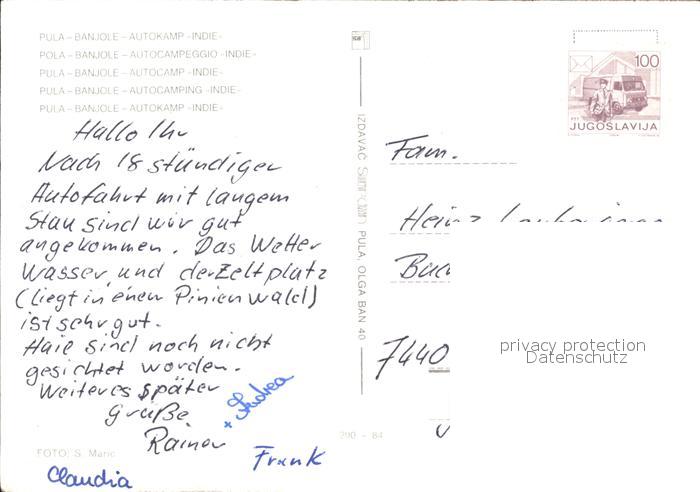 PULA – BANJOLE – AUTOKAMP -INDIE-
POLA – BANJOLE – AUTOCAMPEGGIO -INDIE-
PULA – BANJOLE – AUTOCAMP -INDIE-
PULA – BANJOLE – AUTOCAMPING -INDIE-
PULA – BANJOLE – AUTOKAMP -INDIE-
Hallo Ihr
Nach 18 stündiger
Autofahrt mit langem
Stau sind wir gut
angekommen. Das Wetter
Wasser und der Zeltplatz
(liegt in einem Pinienwald)
ist sehr gut.
Haie sind noch nicht
gesichtet worden.
Weiteres später
Grüße
Rainer
+ Andrea
Frank
Claudia
FOTO: S. Marić
290 - 84
IZDAVAČ PULA, OLGA BAN 40
100
PTT
JUGOSLAVIJA
Fam.
Heinz
7440
privacy protection
Datenschutz